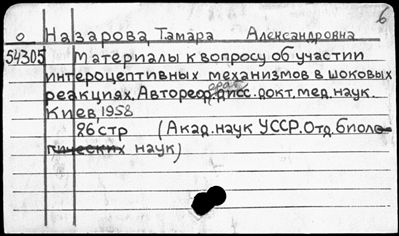 6
о Назарова, Тамара Александровна
54305 Материалы к вопросу об участии
интероцептивных механизмов в шоковых
реакциях. Автореф. дисс. докт. мед. наук.
Киев, 1958
26 стр (Акад. наук УССР. Отд. биоло-
гических наук)